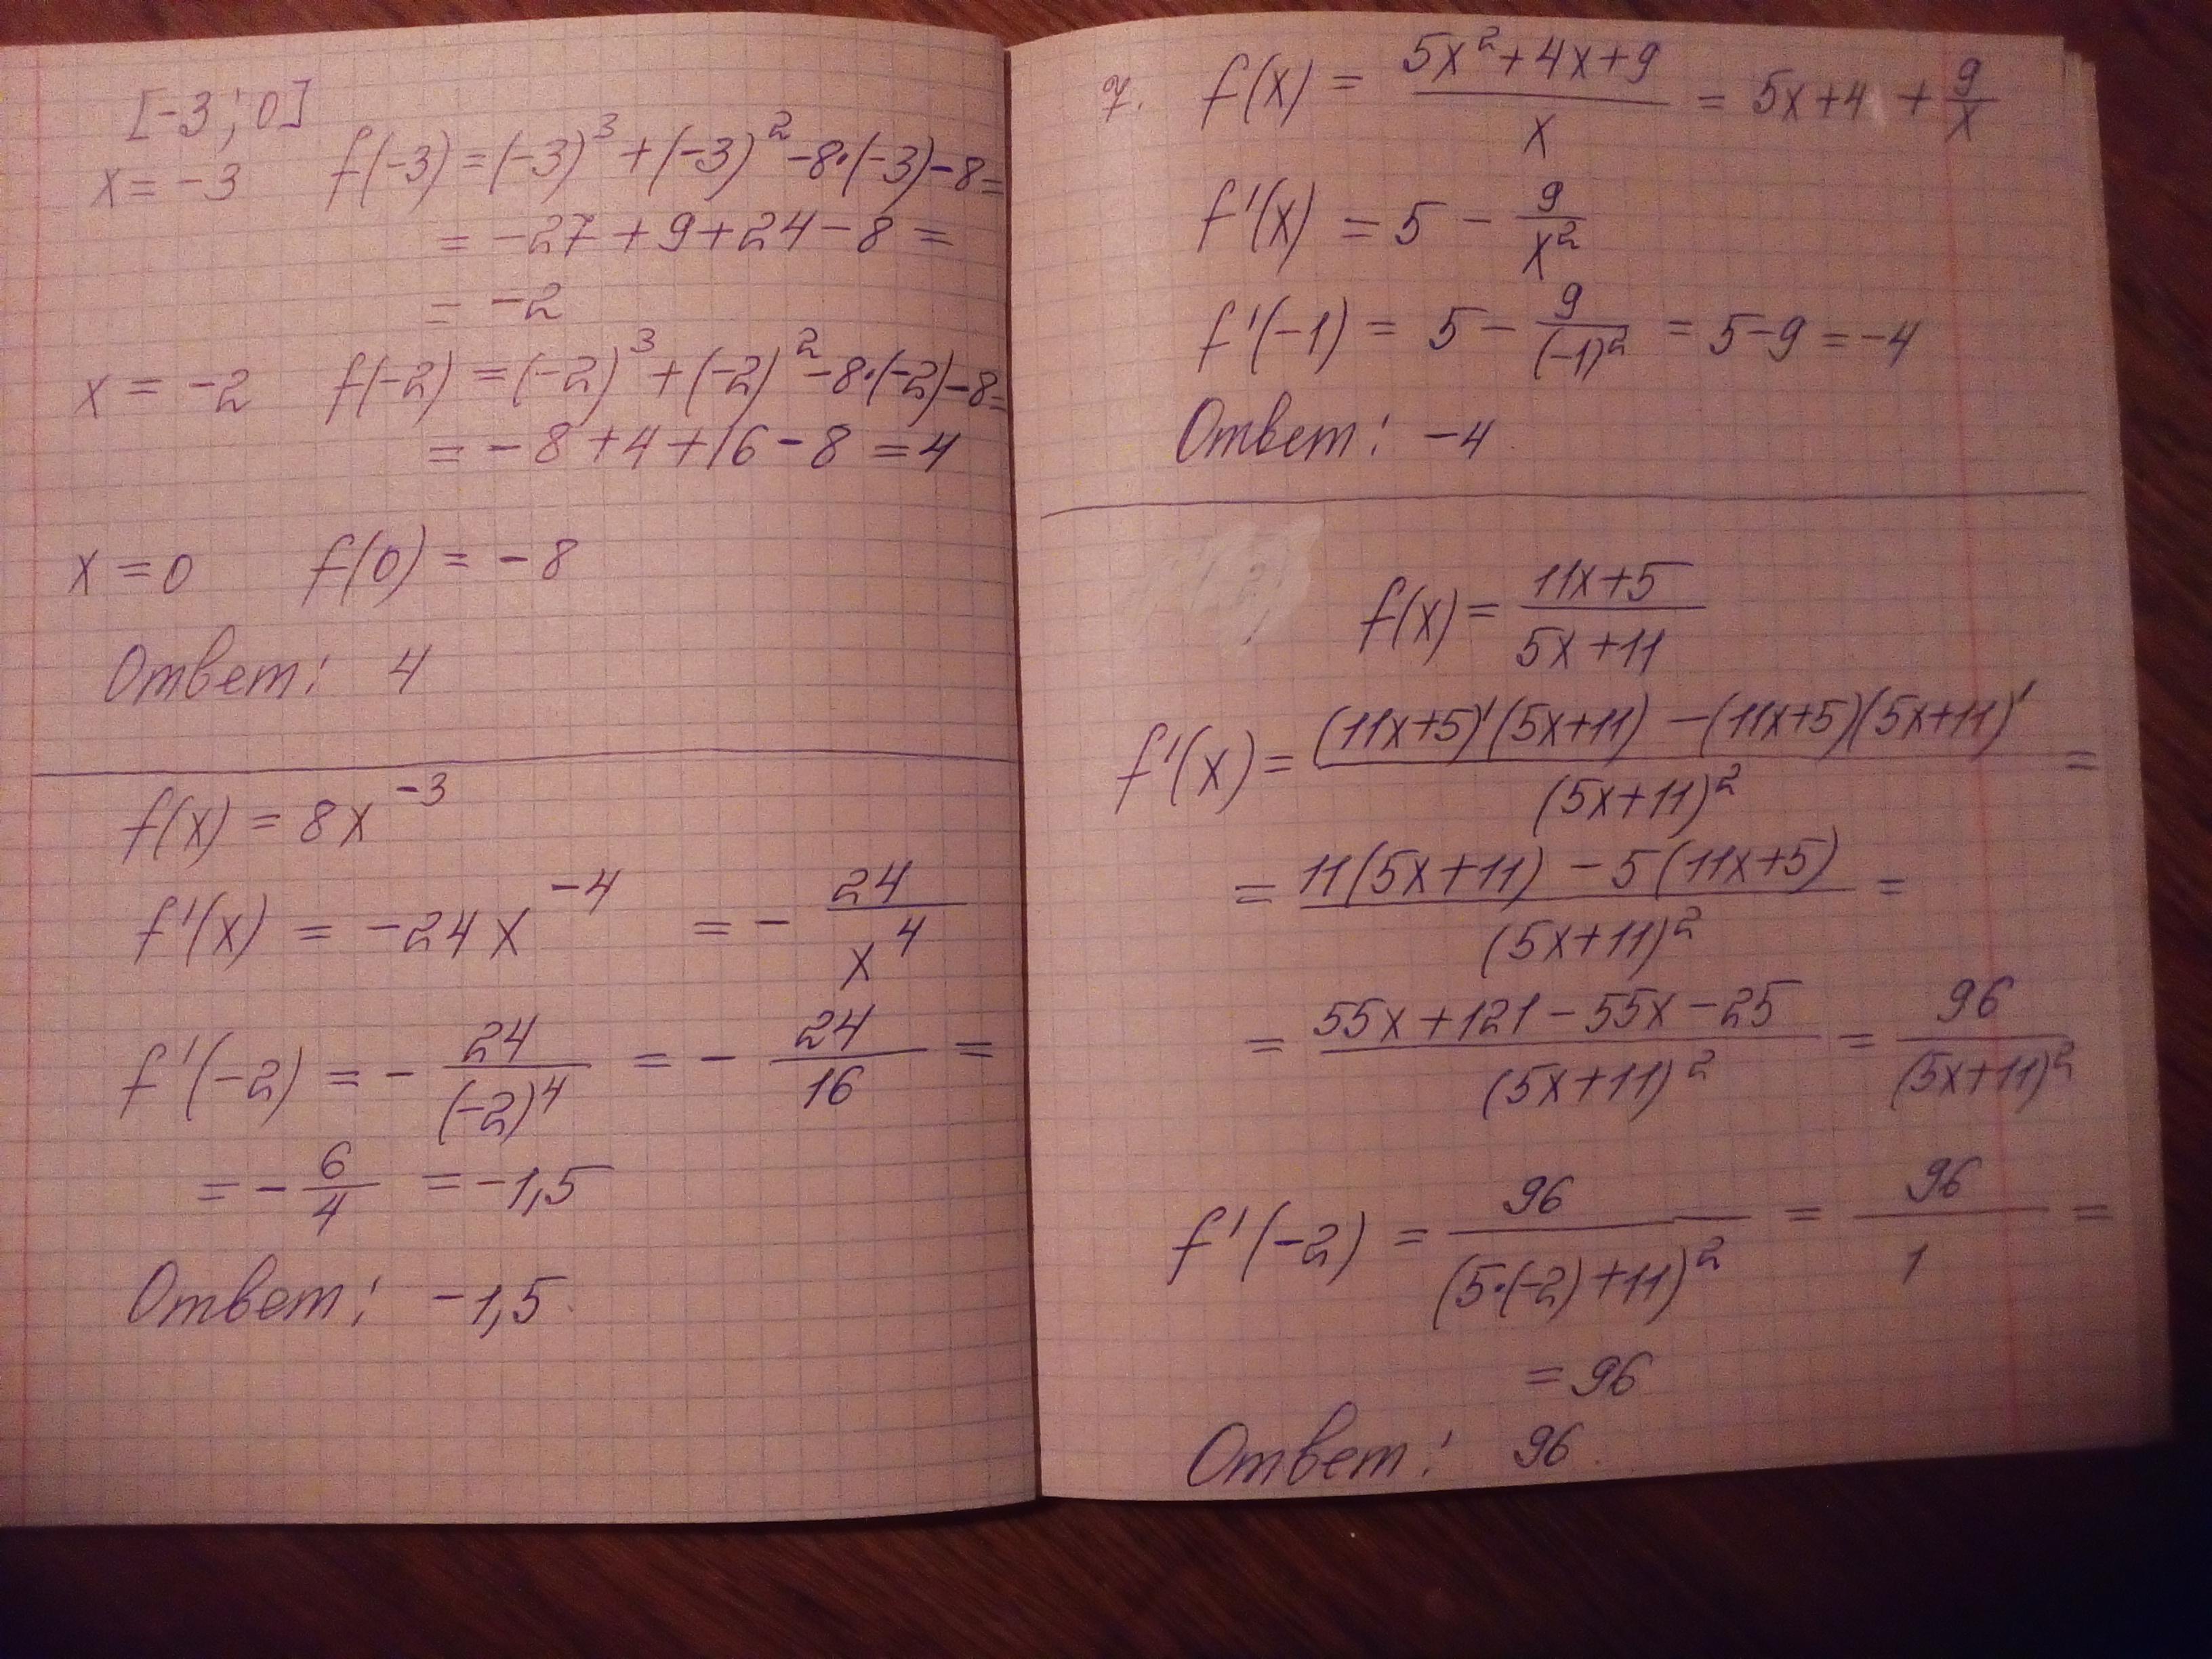 [-3; 0]
x = -3 f(-3) = (-3)³ + (-3)² - 8·(-3) - 8 =
= -27 + 9 + 24 - 8 =
= -2
x = -2 f(-2) = (-2)³ + (-2)² - 8·(-2) - 8 =
= -8 + 4 + 16 - 8 = 4
x = 0 f(0) = -8
Ответ: 4
f(x) = 8x⁻³
f'(x) = -24x⁻⁴ = - 24/x⁴
f'(-2) = - 24/(-2)⁴ = - 24/16 =
= - 6/4 = -1,5
Ответ: -1,5.
7. f(x) = (5x² + 4x + 9)/x = 5x + 4 + 9/x
f'(x) = 5 - 9/x²
f'(-1) = 5 - 9/(-1)² = 5 - 9 = -4
Ответ: -4.
f(x) = (11x + 5)/(5x + 11)
f'(x) = ((11x+5)'(5x+11) - (11x+5)(5x+11)')/(5x+11)² =
= (11(5x+11) - 5(11x+5))/(5x+11)² =
= (55x + 121 - 55x - 25)/(5x+11)² = 96/(5x+11)²
f'(-2) = 96/(5·(-2)+11)² = 96/1 =
= 96
Ответ: 96.